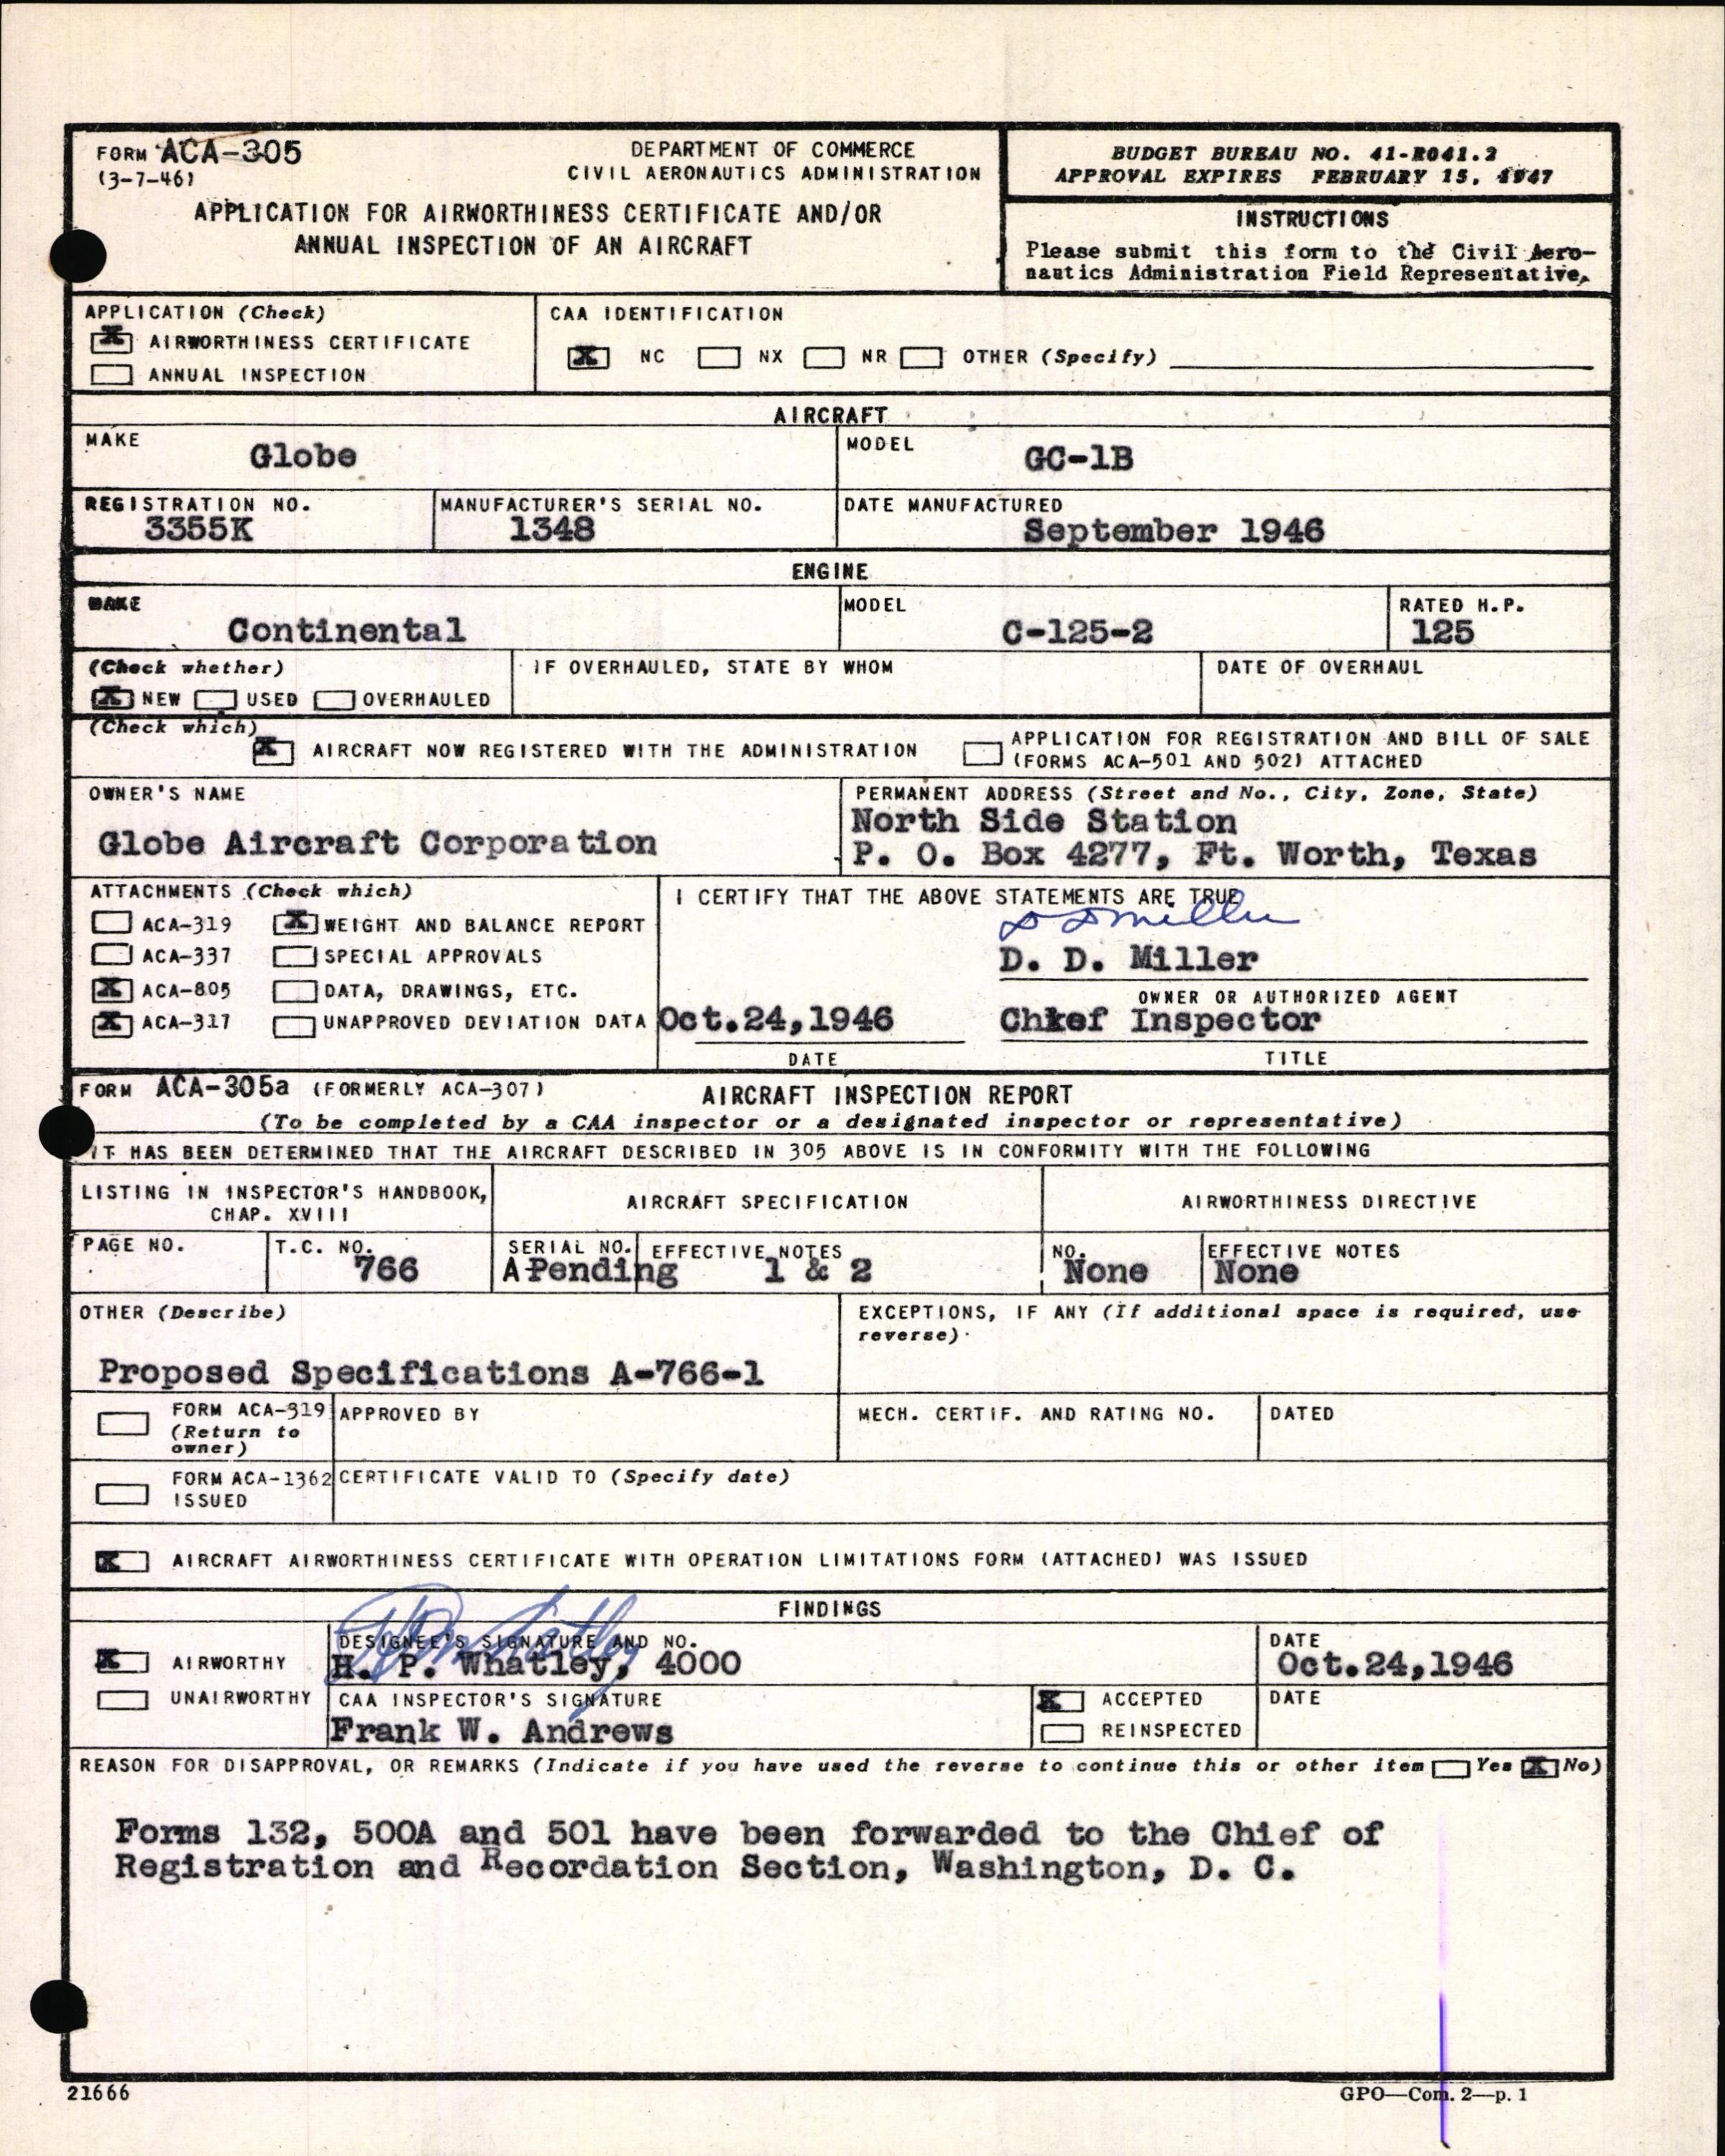 FORM ACA-305
(3-7-46)
DEPARTMENT OF COMMERCE
CIVIL AERONAUTICS ADMINISTRATION
APPLICATION FOR AIRWORTHINESS CERTIFICATE AND/OR
ANNUAL INSPECTION OF AN AIRCRAFT
BUDGET BUREAU NO. 41-R041.2
APPROVAL EXPIRES FEBRUARY 15, 1947
INSTRUCTIONS
Please submit this form to the Civil Aero-
nautics Administration Field Representative.
APPLICATION (Check)
X AIRWORTHINESS CERTIFICATE
ANNUAL INSPECTION
CAA IDENTIFICATION
X NC NX NR OTHER (Specify)
AIRCRAFT
MAKE
Globe
MODEL
GC-1B
REGISTRATION NO.
3355K
MANUFACTURER'S SERIAL NO.
1348
DATE MANUFACTURED
September 1946
ENGINE
MAKE
Continental
MODEL
C-125-2
RATED H.P.
125
(Check whether)
X NEW USED OVERHAULED
IF OVERHAULED, STATE BY WHOM
DATE OF OVERHAUL
(Check which)
X AIRCRAFT NOW REGISTERED WITH THE ADMINISTRATION
APPLICATION FOR REGISTRATION AND BILL OF SALE
(FORMS ACA-501 AND 502) ATTACHED
OWNER'S NAME
Globe Aircraft Corporation
PERMANENT ADDRESS (Street and No., City, Zone, State)
North Side Station
P. O. Box 4277, Ft. Worth, Texas
ATTACHMENTS (Check which)
ACA-319 X WEIGHT AND BALANCE REPORT
ACA-337 SPECIAL APPROVALS
X ACA-805 DATA, DRAWINGS, ETC.
X ACA-317 UNAPPROVED DEVIATION DATA
I CERTIFY THAT THE ABOVE STATEMENTS ARE TRUE
D D Miller
D. D. Miller
OWNER OR AUTHORIZED AGENT
Oct.24,1946
DATE
Chief Inspector
TITLE
FORM ACA-305a (FORMERLY ACA-307)
AIRCRAFT INSPECTION REPORT
(To be completed by a CAA inspector or a designated inspector or representative)
IT HAS BEEN DETERMINED THAT THE AIRCRAFT DESCRIBED IN 305 ABOVE IS IN CONFORMITY WITH THE FOLLOWING
LISTING IN INSPECTOR'S HANDBOOK,
CHAP. XVIII
AIRCRAFT SPECIFICATION
AIRWORTHINESS DIRECTIVE
PAGE NO.
T.C. NO.
766
SERIAL NO.
A Pending
EFFECTIVE NOTES
1 & 2
NO.
None
EFFECTIVE NOTES
None
OTHER (Describe)
Proposed Specifications A-766-1
EXCEPTIONS, IF ANY (If additional space is required, use
reverse).
FORM ACA-319
(Return to
owner)
APPROVED BY
MECH. CERTIF. AND RATING NO.
DATED
FORM ACA-1362
ISSUED
CERTIFICATE VALID TO (Specify date)
X AIRCRAFT AIRWORTHINESS CERTIFICATE WITH OPERATION LIMITATIONS FORM (ATTACHED) WAS ISSUED
FINDINGS
X AIRWORTHY
UNAIRWORTHY
DESIGNEE'S SIGNATURE AND NO.
HP Whatley
H. P. Whatley, 4000
DATE
Oct.24,1946
CAA INSPECTOR'S SIGNATURE
Frank W. Andrews
X ACCEPTED
REINSPECTED
DATE
REASON FOR DISAPPROVAL, OR REMARKS (Indicate if you have used the reverse to continue this or other item Yes X No)
Forms 132, 500A and 501 have been forwarded to the Chief of
Registration and Recordation Section, Washington, D. C.
21666
GPO—Com. 2—p. 1